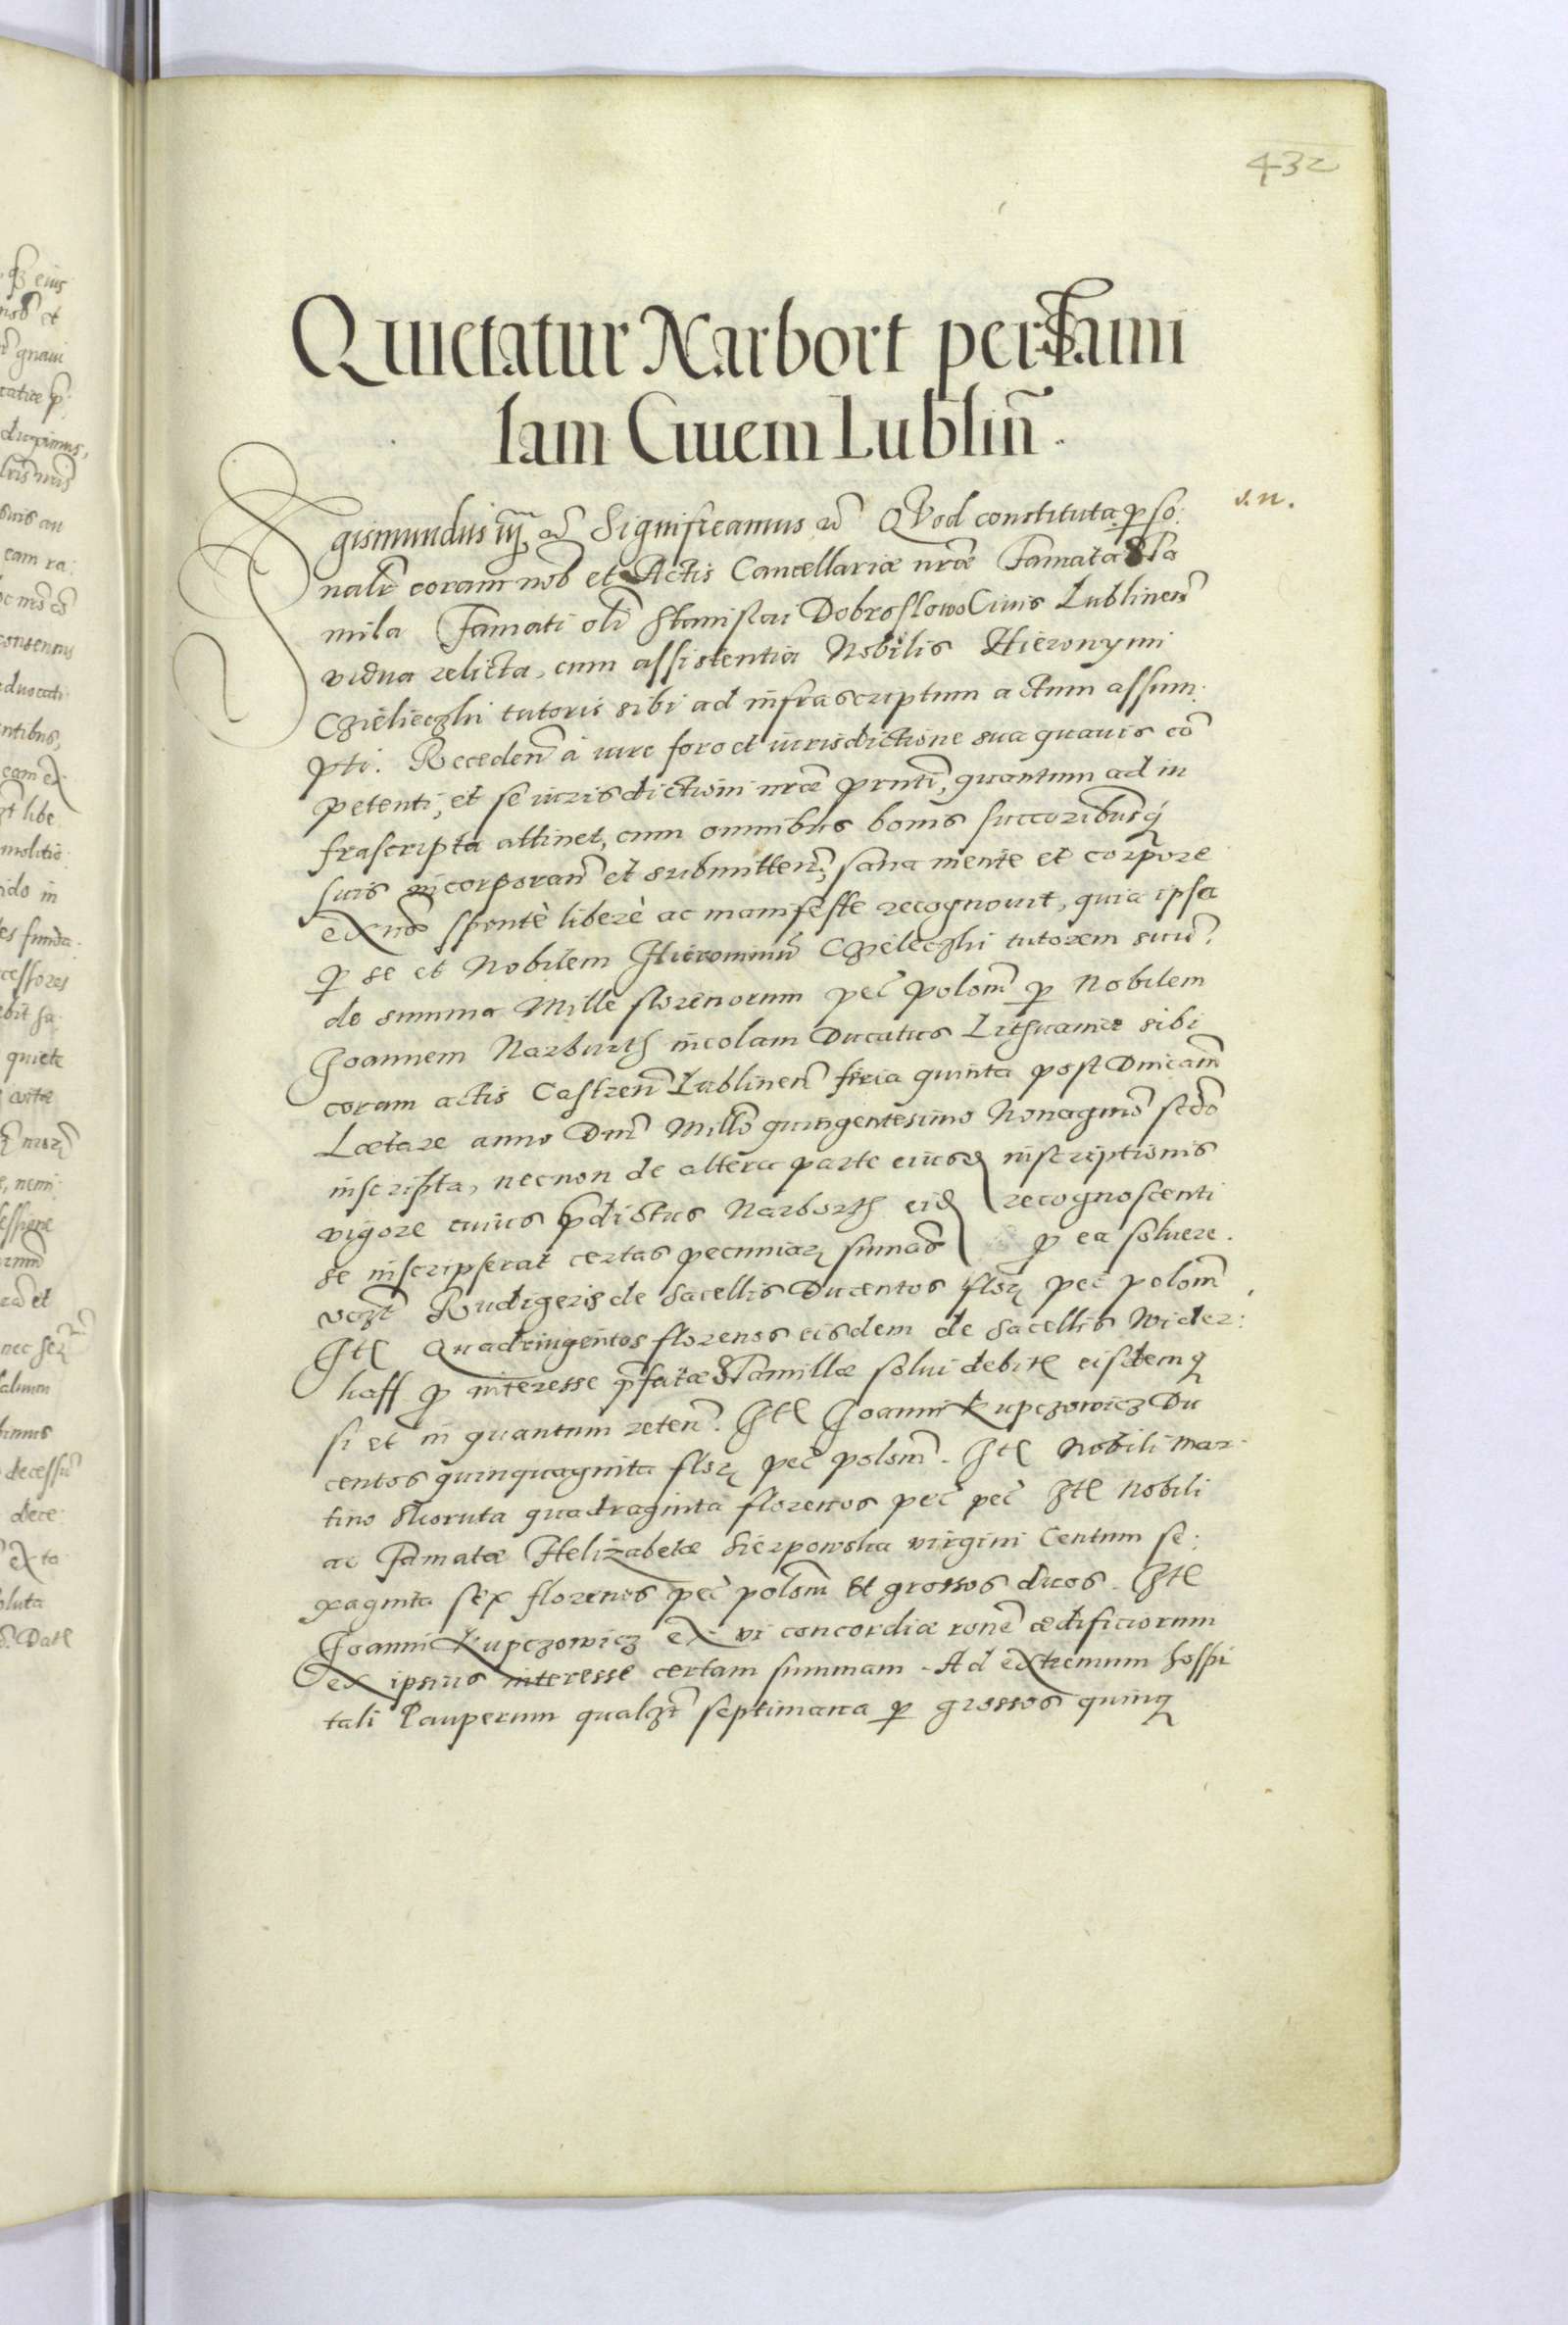 432
Quietatur Narbort per Stami
lam Ciuem Lublin̄.
s. n.
Sigismundus iij, &c Significamus &c Quod constituta perso:
nalr̃ coram nob̃ et Actis Cancellariæ nr̃æ Famata Sta
mila Famati oli͂ Stanislai Dobroslowo Ciuis Lublineñ
vidua relicta, cum assistentia Nobilis Hieronymi
tutoris sibi ad infrascriptum actum assum:
pti. Recedeñ à iure foro et iurisdictione sua quauis cõ
petenti, et se iurisdictioni nr̃æ pr̃nti, quantum ad in
frascripta attinet, cum omnibus bonis successoribusq̃
suis incorporañ et submitteñ, sana mente et corpore
exñs spontè liberè ac manifeste recognouit, quia ipsa
p se et Nobilem Hieronimũ tutorem suũ.
de summa Mille florenorum pec̃ polonĩ p Nobilem
Joannem Narburth incolam Ducatus Lithuaniæ sibi
coram actis Castreñ Lublineñ feria quinta post Dnicam̃
Lætare anno Dnĩ Millõ quingentesimo Nonagmõ scdõ
inscripta, necnon de altera parte eiusd inscriptionis
vigore cuius p̃dictus Narborth eid recognoscenti
se inscripserat certas pecuniar̃ sum̃as p ea soluere.
vczt̃ Rudigeris de Sacellis Ducentos flor̃ pec̃ polonĩ
Itẽ Quadringentos florenos eisdem de Sacellis Wider:
kaff p interesse p̃fatæ Stamillæ solui debitẽ eisdemq̃
si et in quantum reteñ. Itẽ Joanni Kupczowicz Du
centos quinquaginta flor̃ pec̃ polonĩ. Itẽ Nobili Mar
tino quadraginta florenos pec̃ pec̃ Itẽ Nobili
ac Famatæ Helizabetæ Sierpowska virgini Centum se:
xaginta sex florenos pec̃ polonĩ et grossos duos. Itẽ
Joanni Kupczowicz ex vi concordiæ rõne ædificiorum
ex ipsius interesse certam summam. Ad extremum hospi
tali Pauperum qualzt̃ septimana p grossos quinq̃